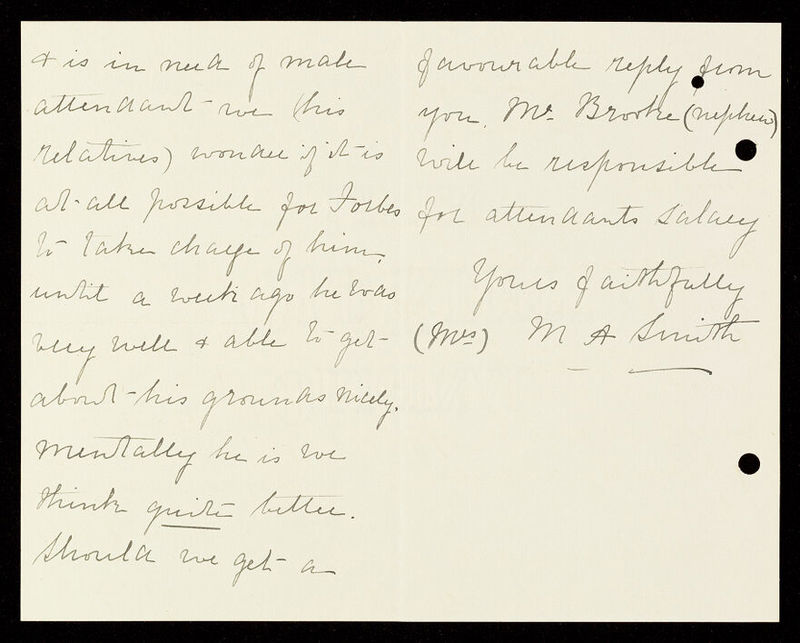 & is in need of male
attendant - we (his
relatives) wonder if it is
at-all possible for Forbes
to take charge of him.
until a week ago he was
very well & able to get-
about-his grounds nicely.
Mentally he is we
think quite better.
Should we get a
favourable reply from
you, Mr. Brooke (nephew)
will be responsible
for attendants salary
Yours faithfully
(Mrs) M A Smith